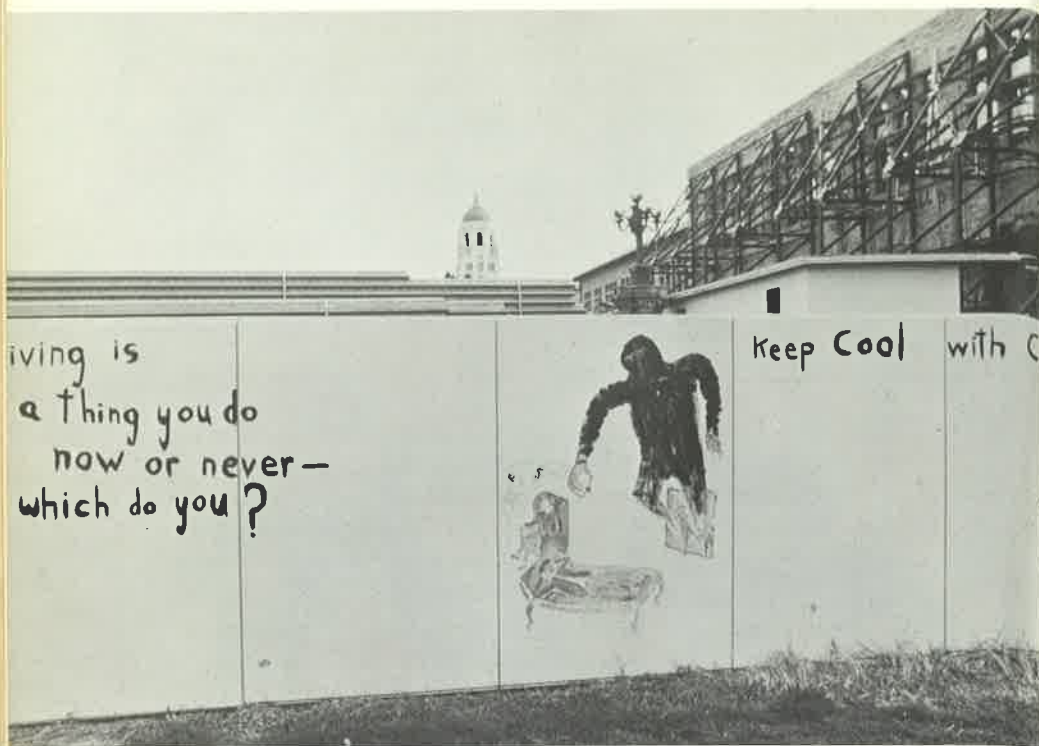 iving is
a thing you do
now or never—
which do you?
Keep Cool with C